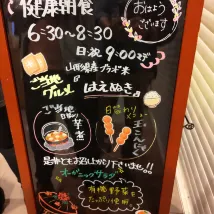 健康朝食
おはよう
ございます
6:30~8:30
日・祝 9:00まで
山形県産ブランド米
はえぬき
ご当地
グルメ
ご当地
芋煮
日替わり
玉こんにゃく
是非ともお召し上がり下さいませ!!
オーガニックサラダ
有機野菜を
たっぷり使用